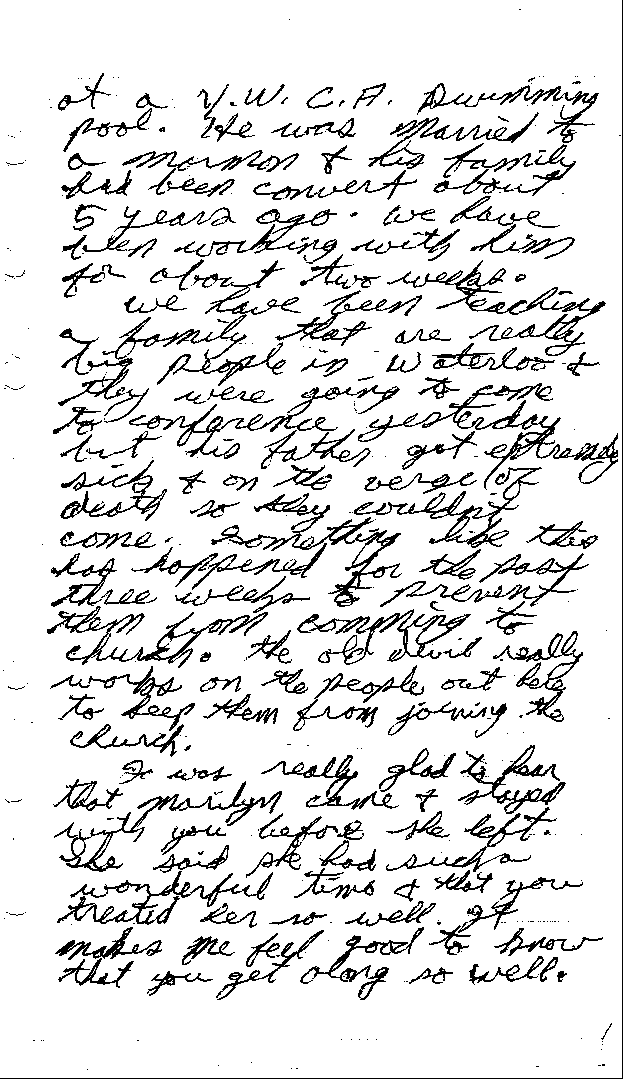 at a Y.W.C.A. Swimming
pool. He was married to
a mormon & his family
had been convert about
5 years ago. we have
been working with him
for about two weeks.
we have been teaching
a family that are really
big people in Waterloo &
they were going to come
to conference yesterday
but his father got extremely
sick & on the verge of
death so they couldn't
come. Something like this
has happened for the past
three weeks to prevent
them from comming to
church. the old devil really
works on the people out here
to keep them from joining the
church.
I was really glad to hear
that marilyn came & stayed
with you before she left.
She said she had such a
wonderful time & that you
treated her so well. It
makes me feel good to know
that you get along so well.